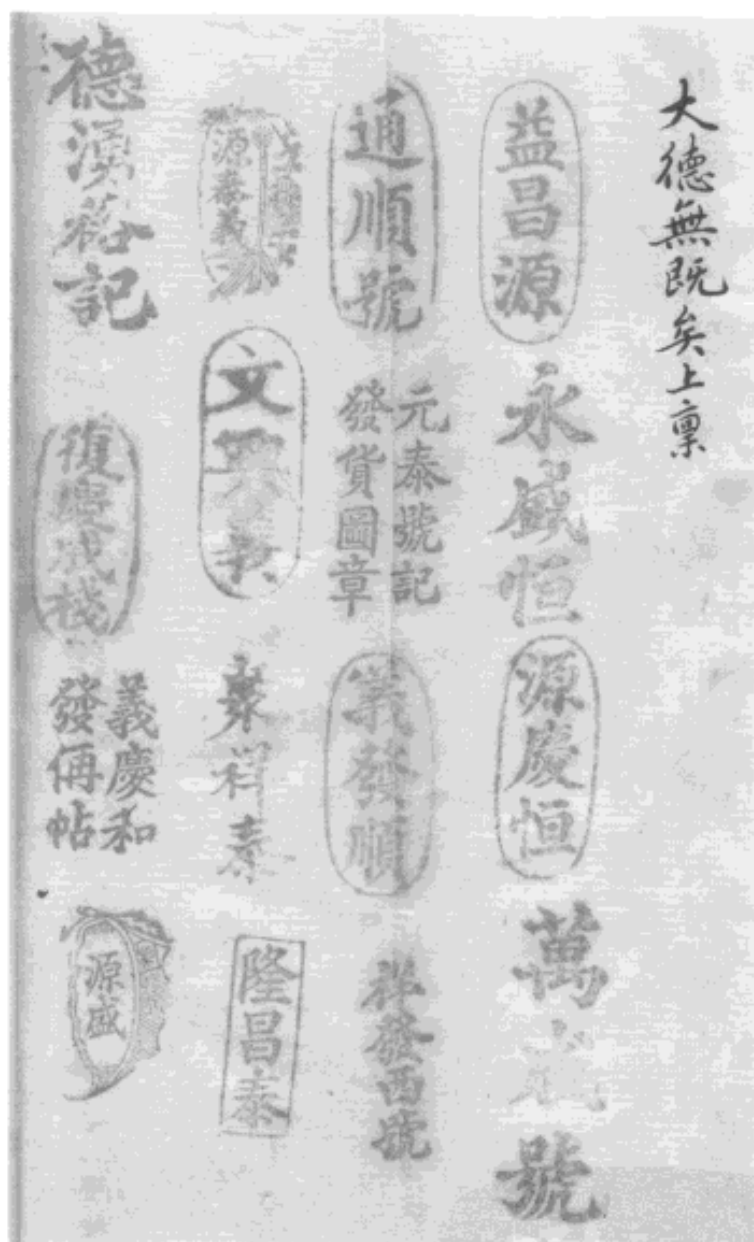 大德無既矣上禀
益昌源
永盛恒
源慶恒
萬
號
通順號
元泰號記
發貨圖章
義發順
祥發西號
源泰義
文興
聚祥泰
隆昌泰
德湧
記
復慶成棧
義慶和
發俩帖
源盛